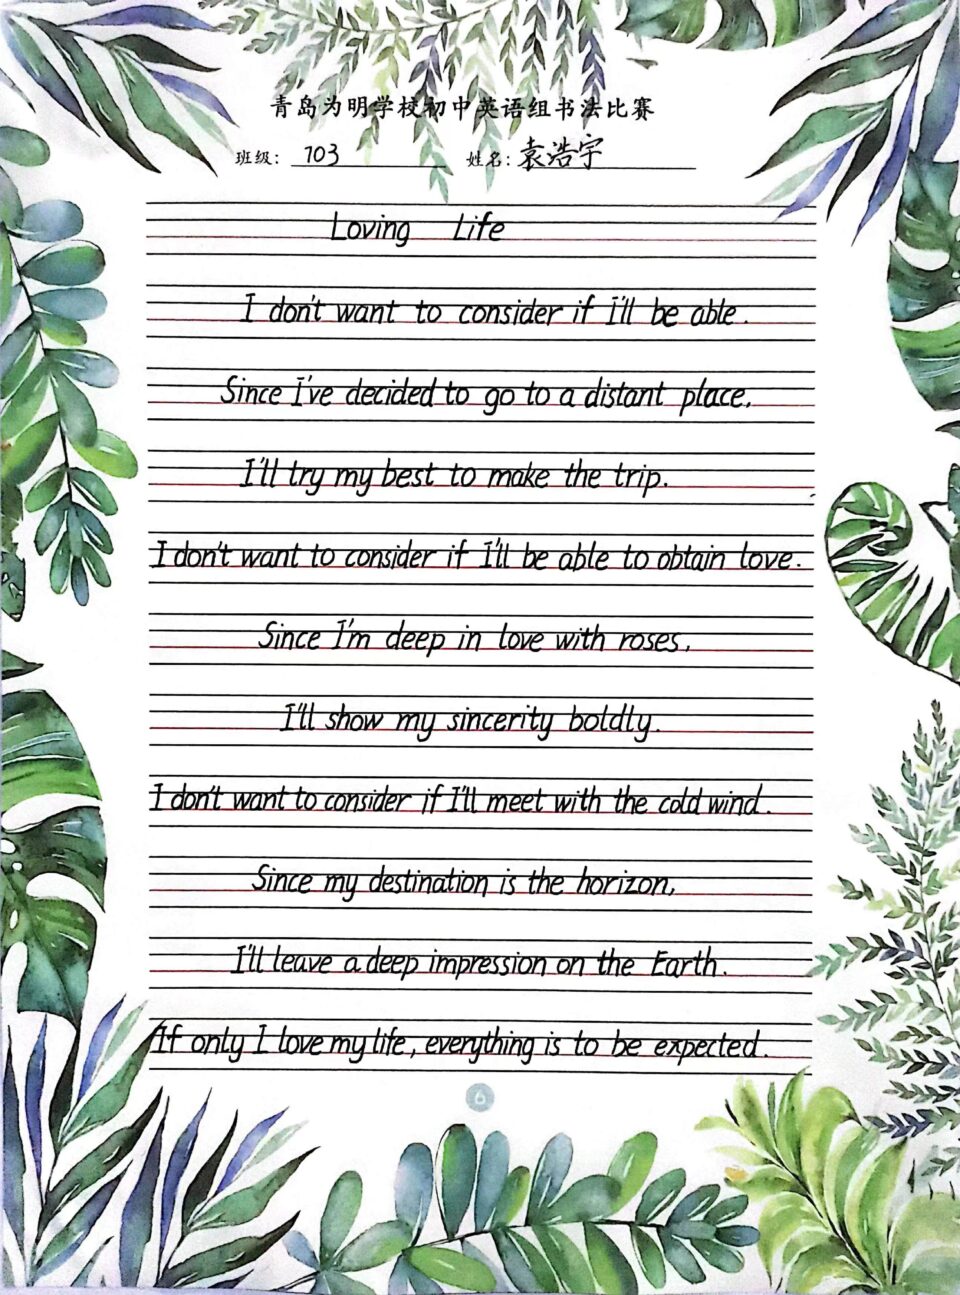 青岛为明学校初中英语组书法比赛
班级: 703 姓名: 袁浩宇
Loving Life
I don't want to consider if I'll be able.
Since I've decided to go to a distant place,
I'll try my best to make the trip.
I don't want to consider if I'll be able to obtain love.
Since I'm deep in love with roses,
I'll show my sincerity boldly.
I don't want to consider if I'll meet with the cold wind.
Since my destination is the horizon,
I'll leave a deep impression on the Earth.
If only I love my life, everything is to be expected.
6